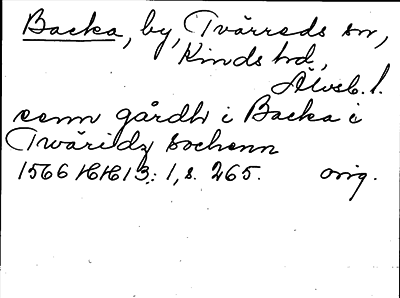 Backa, by, Tvärreds sn,
Kinds hd,
Älvsb. l.
cenn gårdh i Backa i
Twäridz sochenn
1566 HH 13: 1, s. 265. orig.